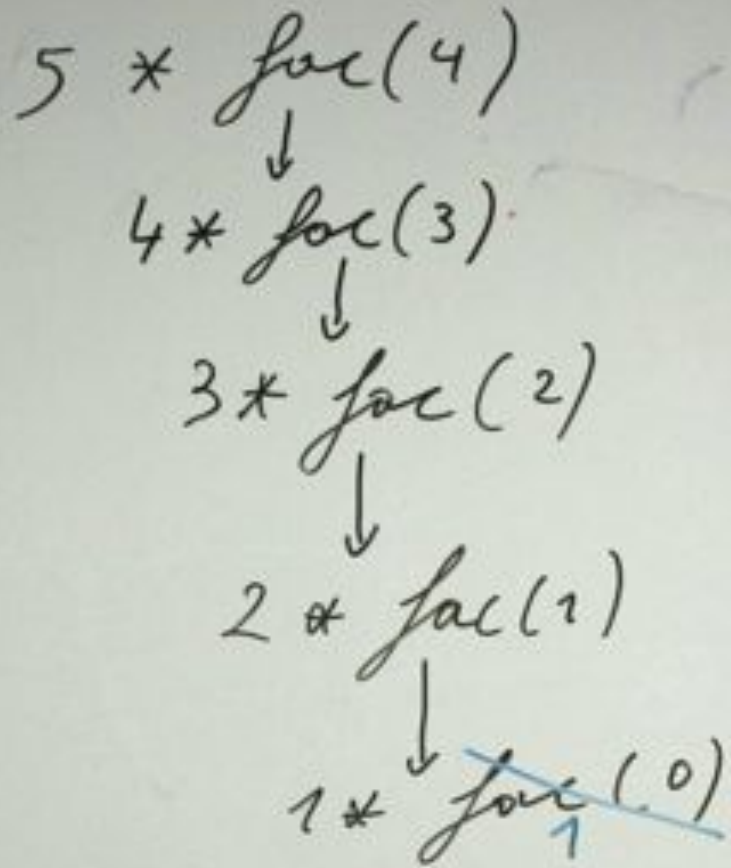 5 * fac(4)
4 * fac(3)
3 * fac(2)
2 * fac(1)
1 * fac(0)
1